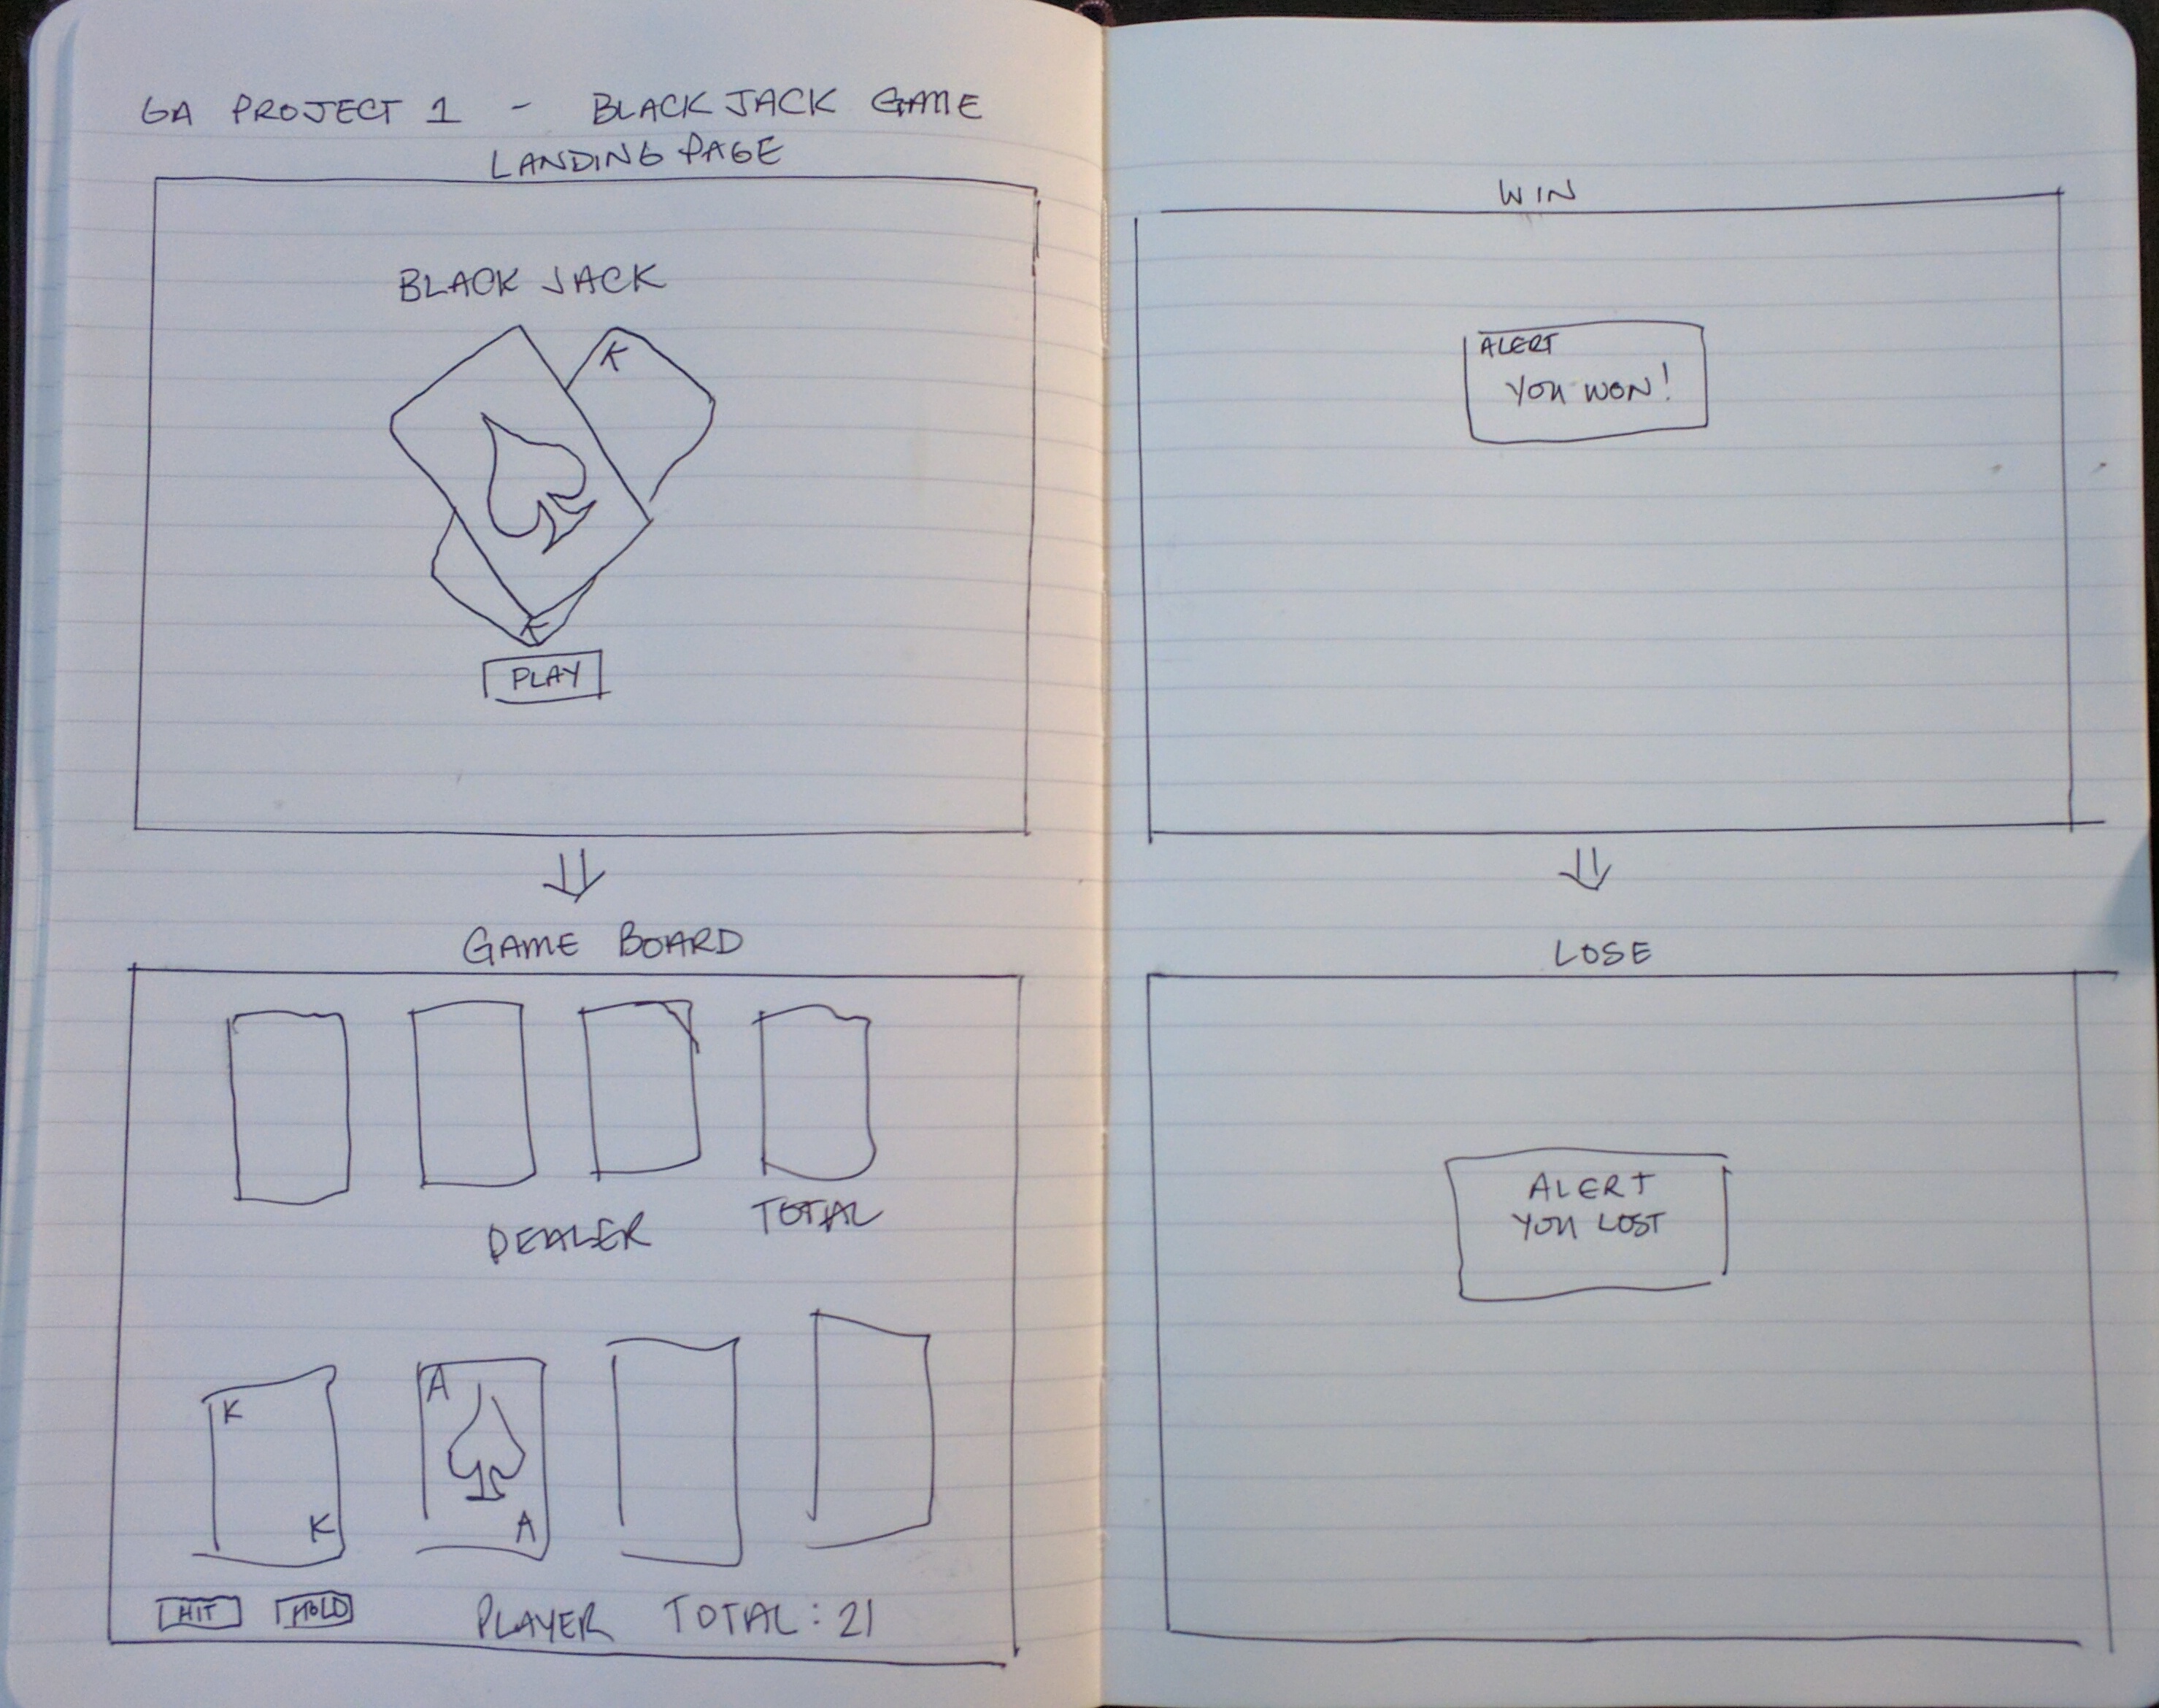 GA PROJECT 1 - BLACK JACK GAME
LANDING PAGE
BLACK JACK
K
K
PLAY
GAME BOARD
DEALER TOTAL
K
K
A
A
HIT HOLD PLAYER TOTAL: 21
WIN
ALERT
YOU WON!
LOSE
ALERT
YOU LOST